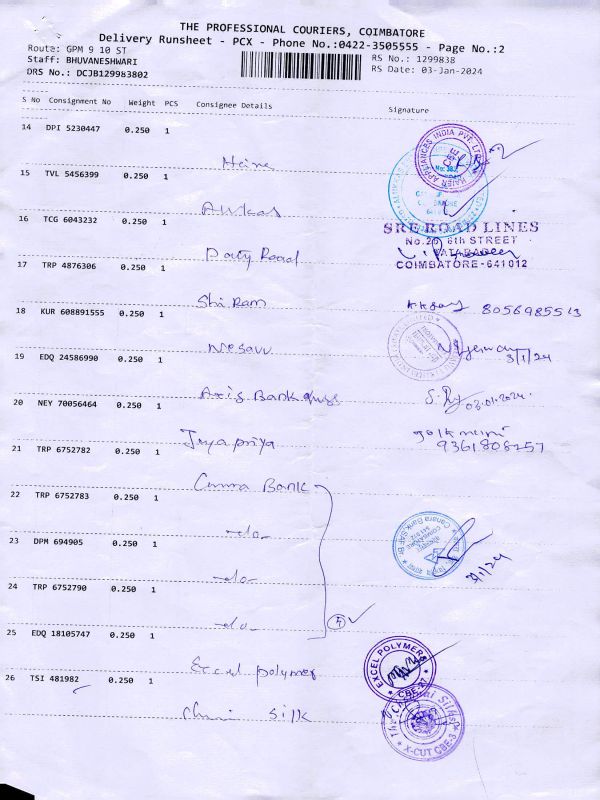 THE PROFESSIONAL COURIERS, COIMBATORE
Delivery Runsheet - PCX - Phone No.:0422-3505555 - Page No.:2
Route: GPM 9 10 ST
RS No.: 1299838
Staff: BHUVANESHWARI
RS Date: 03-Jan-2024
DRS No.: DCJB129983802
S No Consignment No Weight PCS Consignee Details Signature
14 DPI 5230447 0.250 1
HAIER APPLIANCES INDIA PVT. LTD.
15 TVL 5456399 0.250 1
16 TCG 6043232 0.250 1
SREE ROAD LINES
No.20, 6th STREET
COIMBATORE-641012
17 TRP 4876306 0.250 1
Shi Ram
8056985513
18 KUR 608891555 0.250 1
3/1/24
19 EDQ 24586990 0.250 1
Axis Bank
03.01.2024
20 NEY 70056464 0.250 1
Jeyapriya
9361808257
21 TRP 6752782 0.250 1
Canra Bank
22 TRP 6752783 0.250 1
-do-
Canara Bank
23 DPM 694905 0.250 1
-do-
3/1/24
24 TRP 6752790 0.250 1
-do-
4
25 EDQ 18105747 0.250 1
Excel polymer
EXCEL POLYMERS
CBE-27
26 TSI 481982 0.250 1
silk
The Chennai Silks
X-CUT CBE-3